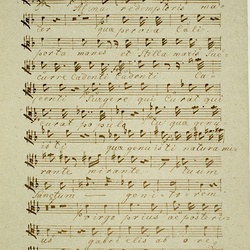 Alma redemptoris ma-
ter qua pervia Cali
porta manes et Stella maris Suc-
curre Cadenti Cadenti Ca-
denti Surgere qui Curat qui
Curat populo Tu qua genu-
isti qua genuisti natura mi-
rante mirante, tuum
Sanctum geni-torem
Virgo prius ac posteri-
us gabrielis ab o re